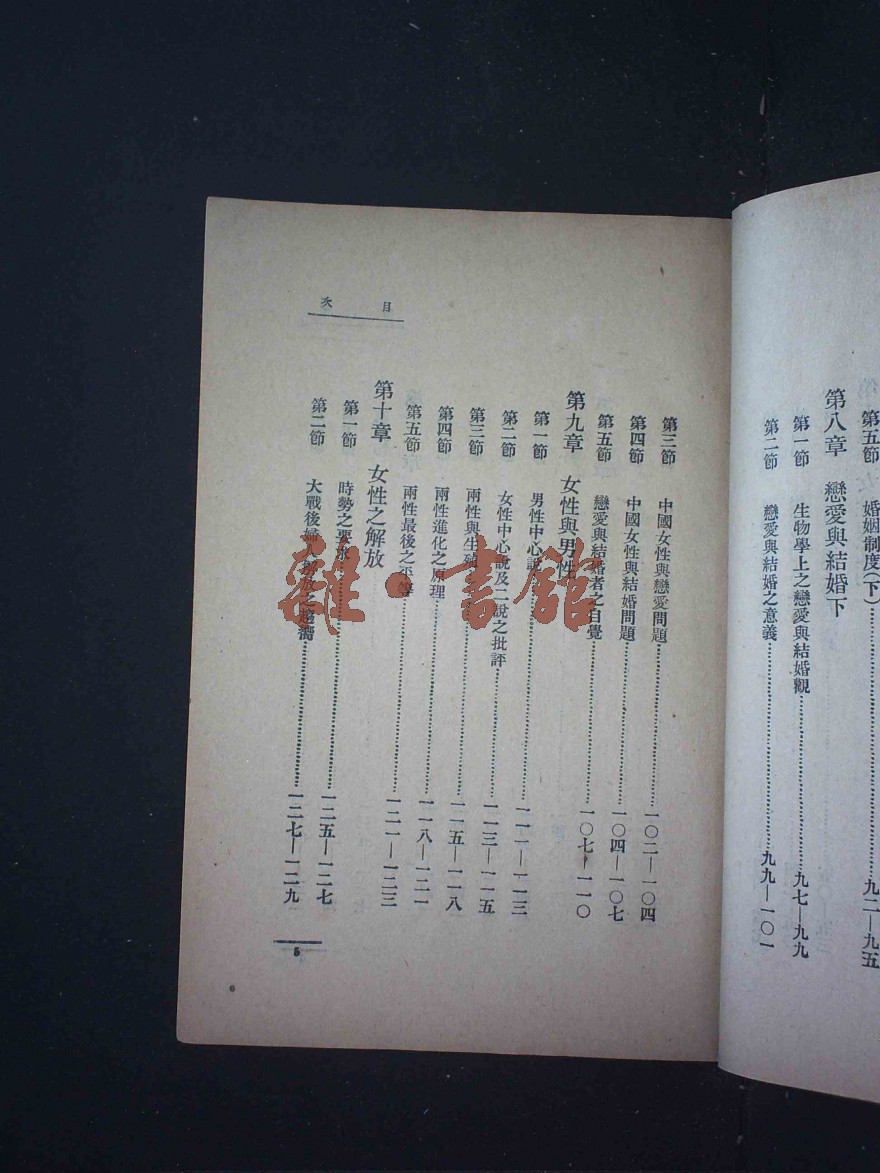 第五節 婚姻制度(下)⋯⋯九二—九五
第八章 戀愛與結婚下
第一節 生物學上之戀愛與結婚觀⋯⋯九七—九九
第二節 戀愛與結婚之意義⋯⋯九九—一〇一
目次
第三節 中國女性與戀愛問題⋯⋯一〇二—一〇四
第四節 中國女性與結婚問題⋯⋯一〇四—一〇七
第五節 戀愛與結婚者之自覺⋯⋯一〇七—一一〇
第九章 女性與男性
第一節 男性中心說⋯⋯一一一—一一三
第二節 女性中心說及二說之批評⋯⋯一一三—一一五
第三節 兩性與生殖⋯⋯一一五—一一八
第四節 兩性進化之原理⋯⋯一一八—一二一
第五節 兩性最後之平等⋯⋯一二一—一二三
第十章 女性之解放
第一節 時勢之要求⋯⋯一二五—一二七
第二節 大戰後婦人解放之趨嚮⋯⋯一二七—一二九
5
雜·書館